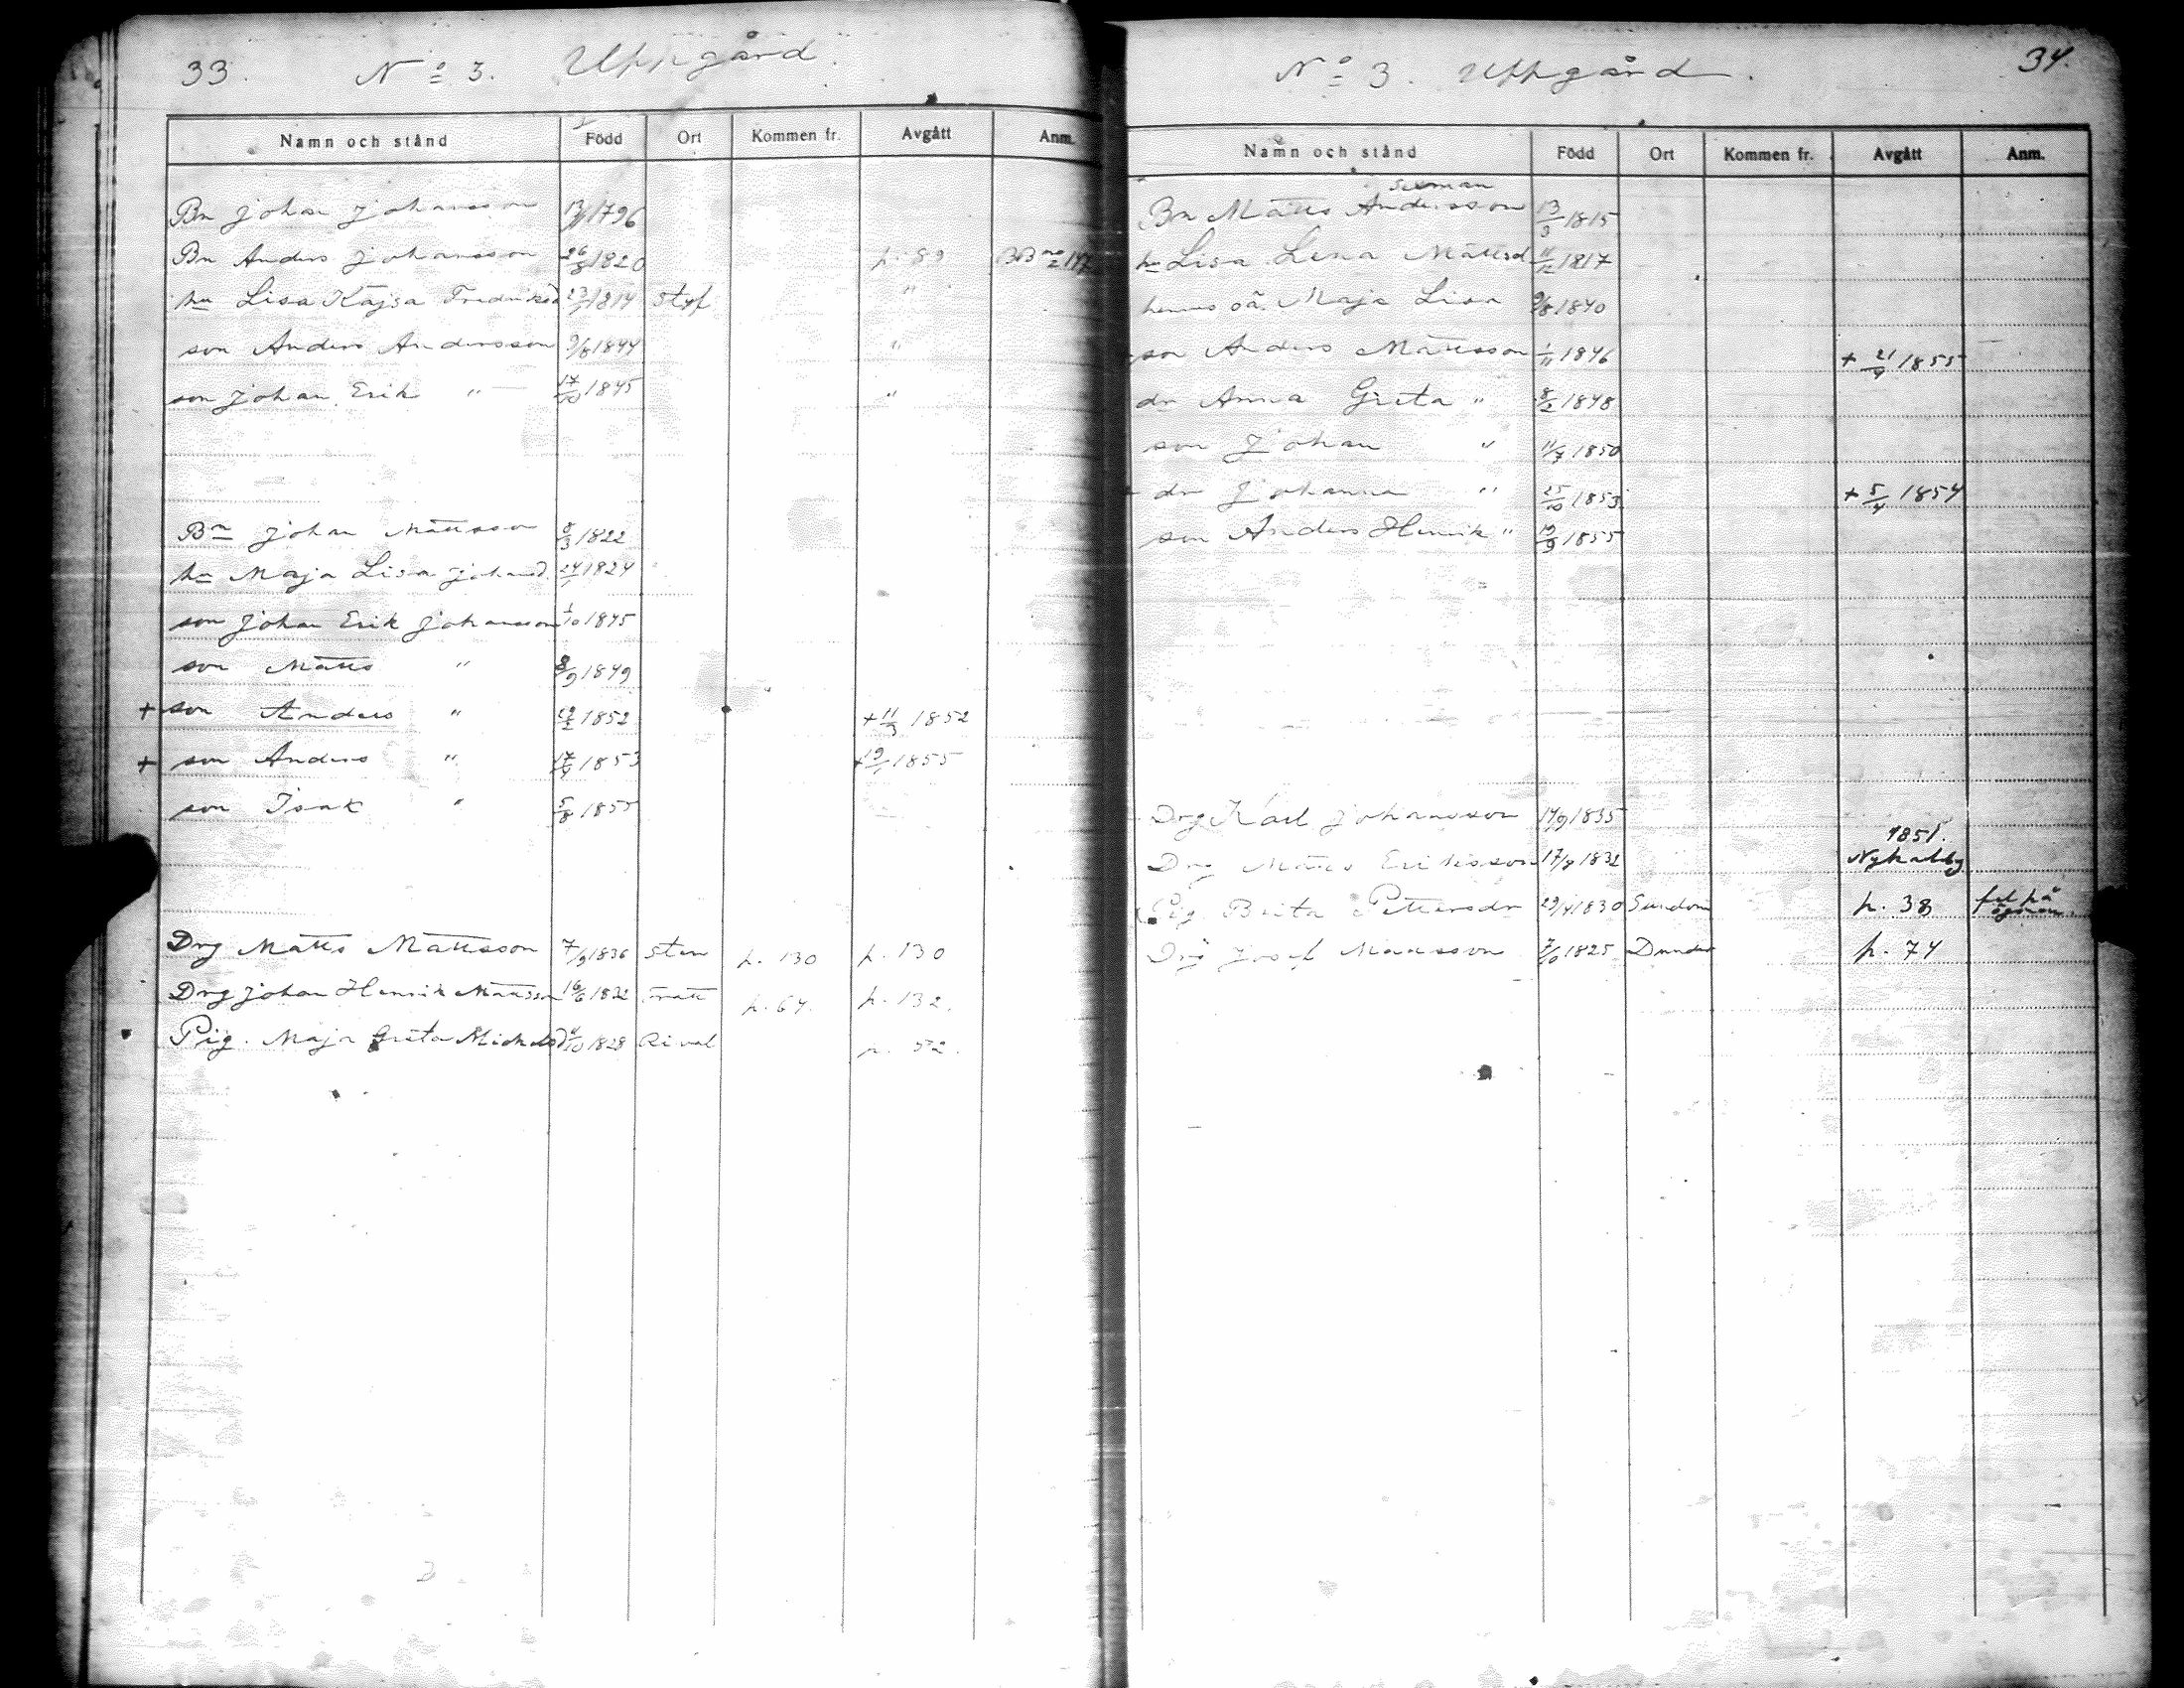 33. No 3. Uppgård.
Namn och stånd Född Ort Kommen fr. Avgått Anm.
Bn Johan Johansson 1796
Bn Anders Johansson 26/8 1820 p. 89
hu Lisa Kajsa Fredriksd 1814 Styf "
son Anders Andersson 9/8 1844 "
son Johan Erik " 17/10 1845 "
Bn Johan Mattsson 8/3 1822
hu Maja Lisa Johansd. 24/1 1824
son Johan Erik Johansson 1/10 1845
son Matts " 8/9 1849
+ son Anders " 1852 + 11/3 1852
+ son Anders " 1853 + 1855
son Isak " 5/8 1855
Drg Matts Mattsson 7/9 1836 Sten p. 130 p. 130
Drg Johan Henrik Mattsson 16/6 1832 p. 64. p. 132.
Pig. Maja Greta Michelsd 1828 Rimal p. 52.
No 3. Uppgård. 34.
Namn och stånd Född Ort Kommen fr. Avgått Anm.
Bn Matts Andersson 13/3 1815
hu Lisa Lena Mattsd. 11/12 1817
hennes oä. Maja Lisa 9/8 1840
son Anders Mattsson 1/11 1846 + 21/9 1855
dr Anna Greta " 8/2 1848
son Johan " 11/7 1850
dr Johanna " 25/10 1853 + 5/4 1854
son Anders Henrik " 19/9 1855
Drg Karl Johansson 14/9 1835
1851.
Drg Matts Eriksson 17/8 1832 Nykarleby
Pig. Brita Pettersdr 29/4 1830 Sundom p. 38 fel på ögonen
Drg Josef Mattsson 7/10 1825 Dunder p. 74